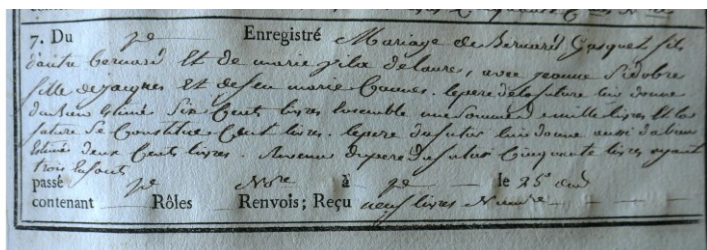 7. Du do Enregistré Mariage de Bernard Gasquet fils
d'autre bernard Et de marie delaure, avec jeanne Sidobre
fille de jacques Et de feu marie Cannes. le pere de la future lui donne
du bien Estimé Six Cents livres Ensemble une Somme de mille livres Et la
future Se Constitue Cent livres. le pere du futur lui donne aussi du bien
Estimé deux Cents livres. Revenu du pere du futur Cinquante livres ayant
trois Enfants
passé do Nore à do le 25e dud
contenant Rôles Renvois; Reçu neuf livres Numre